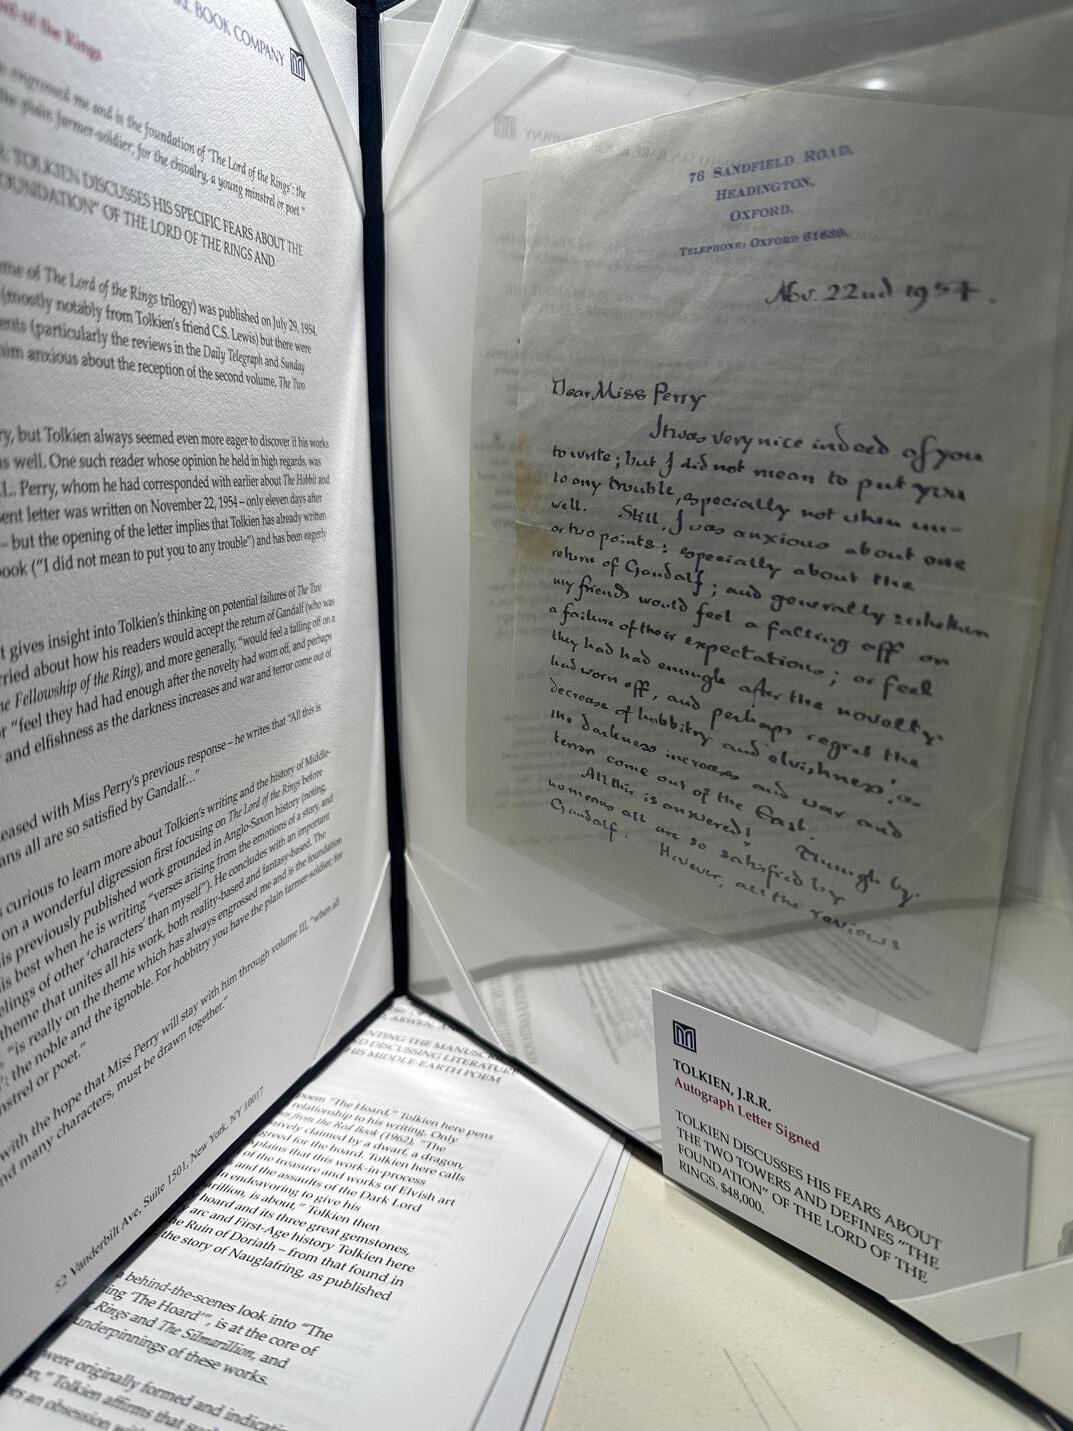 RE BOOK COMPANY
of the Rings
engrossed me and is the foundation of 'The Lord of the Rings': the
the plain farmer-soldier, for the chivalry, a young minstrel or poet."
TOLKIEN DISCUSSES HIS SPECIFIC FEARS ABOUT THE
OUNDATION" OF THE LORD OF THE RINGS AND
me of The Lord of the Rings trilogy) was published on July 29, 1954.
(mostly notably from Tolkien's friend C.S. Lewis) but there were
ents (particularly the reviews in the Daily Telegraph and Sunday
him anxious about the reception of the second volume, The Two
ry, but Tolkien always seemed even more eager to discover if his works
as well. One such reader whose opinion he held in high regards, was
.L. Perry, whom he had corresponded with earlier about The Hobbit and
ent letter was written on November 22, 1954 – only eleven days after
– but the opening of the letter implies that Tolkien has already written
ook ("I did not mean to put you to any trouble") and has been eagerly
t gives insight into Tolkien's thinking on potential failures of The Two
rried about how his readers would accept the return of Gandalf (who was
he Fellowship of the Ring), and more generally, "would feel a falling off on a
or "feel they had had enough after the novelty had worn off, and perhaps
and elfishness as the darkness increases and war and terror come out of
eased with Miss Perry's previous response – he writes that "All this is
ans all are so satisfied by Gandalf..."
curious to learn more about Tolkien's writing and the history of Middle-
on a wonderful digression first focusing on The Lord of the Rings before
is previously published work grounded in Anglo-Saxon history (noting,
is best when he is writing "verses arising from the emotions of a story, and
elings of other 'characters' than myself"). He concludes with an important
theme that unites all his work, both reality-based and fantasy-based. The
"is really on the theme which has always engrossed me and is the foundation
': the noble and the ignoble. For hobbitry you have the plain farmer-soldier; for
nstrel or poet."
with the hope that Miss Perry will stay with him through volume III, "when all
nd many characters, must be drawn together."
52 Vanderbilt Ave, Suite 1501, New York, NY 10017
76 SANDFIELD ROAD,
HEADINGTON,
OXFORD.
TELEPHONE: OXFORD 61639.
Nov. 22nd 1954.
Dear Miss Perry
It was very nice indeed of you
to write; but I did not mean to put you
to any trouble, especially not when un-
well. Still, I was anxious about one
or two points: especially about the
return of Gandalf; and generally whether
my friends would feel a falling off on
a failure of their expectations; or feel
they had had enough after the novelty
had worn off, and perhaps regret the
decrease of hobbitry and 'elvishness', as
the darkness increases and war and
terror come out of the East.
All this is answered! Though by
no means all are so satisfied by
Gandalf. However, all the reviews
TOLKIEN, J.R.R.
Autograph Letter Signed
TOLKIEN DISCUSSES HIS FEARS ABOUT
THE TWO TOWERS AND DEFINES "THE
FOUNDATION" OF THE LORD OF THE
RINGS. $48,000.
ARWEN,
NTING THE MANUSCR
D DISCUSSING LITERATU
HIS MIDDLE-EARTH POEM
poem "The Hoard," Tolkien here pens
relationship to his writing. Only
from the Red Book (1962), "The
sively claimed by a dwarf, a dragon,
greed for the hoard. Tolkien here calls
plains that this work-in-process
of the treasure and works of Elvish art
and the assaults of the Dark Lord
n endeavoring to give his
rillion, is about," Tolkien then
hoard and its three great gemstones,
arc and First-Age history Tolkien here
e Ruin of Doriath – from that found in
the story of Nauglafring, as published
a behind-the-scenes look into "The
ing 'The Hoard'", is at the core of
Rings and The Silmarillion, and
underpinnings of these works.
were originally formed and indicati
on," Tolkien affirms that
rs an obsession wit